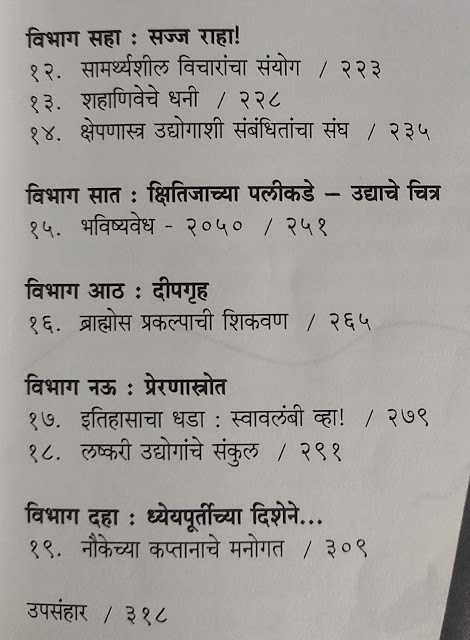 विभाग सहा : सज्ज राहा!
१२. सामर्थ्यशील विचारांचा संयोग / २२३
१३. शहाणिवेचे धनी / २२८
१४. क्षेपणास्त्र उद्योगाशी संबंधितांचा संघ / २३५
विभाग सात : क्षितिजाच्या पलीकडे – उद्याचे चित्र
१५. भविष्यवेध - २०५० / २५१
विभाग आठ : दीपगृह
१६. ब्राह्मोस प्रकल्पाची शिकवण / २६५
विभाग नऊ : प्रेरणास्रोत
१७. इतिहासाचा धडा : स्वावलंबी व्हा! / २७९
१८. लष्करी उद्योगांचे संकुल / २९१
विभाग दहा : ध्येयपूर्तीच्या दिशेने...
१९. नौकेच्या कप्तानाचे मनोगत / ३०९
उपसंहार / ३१८